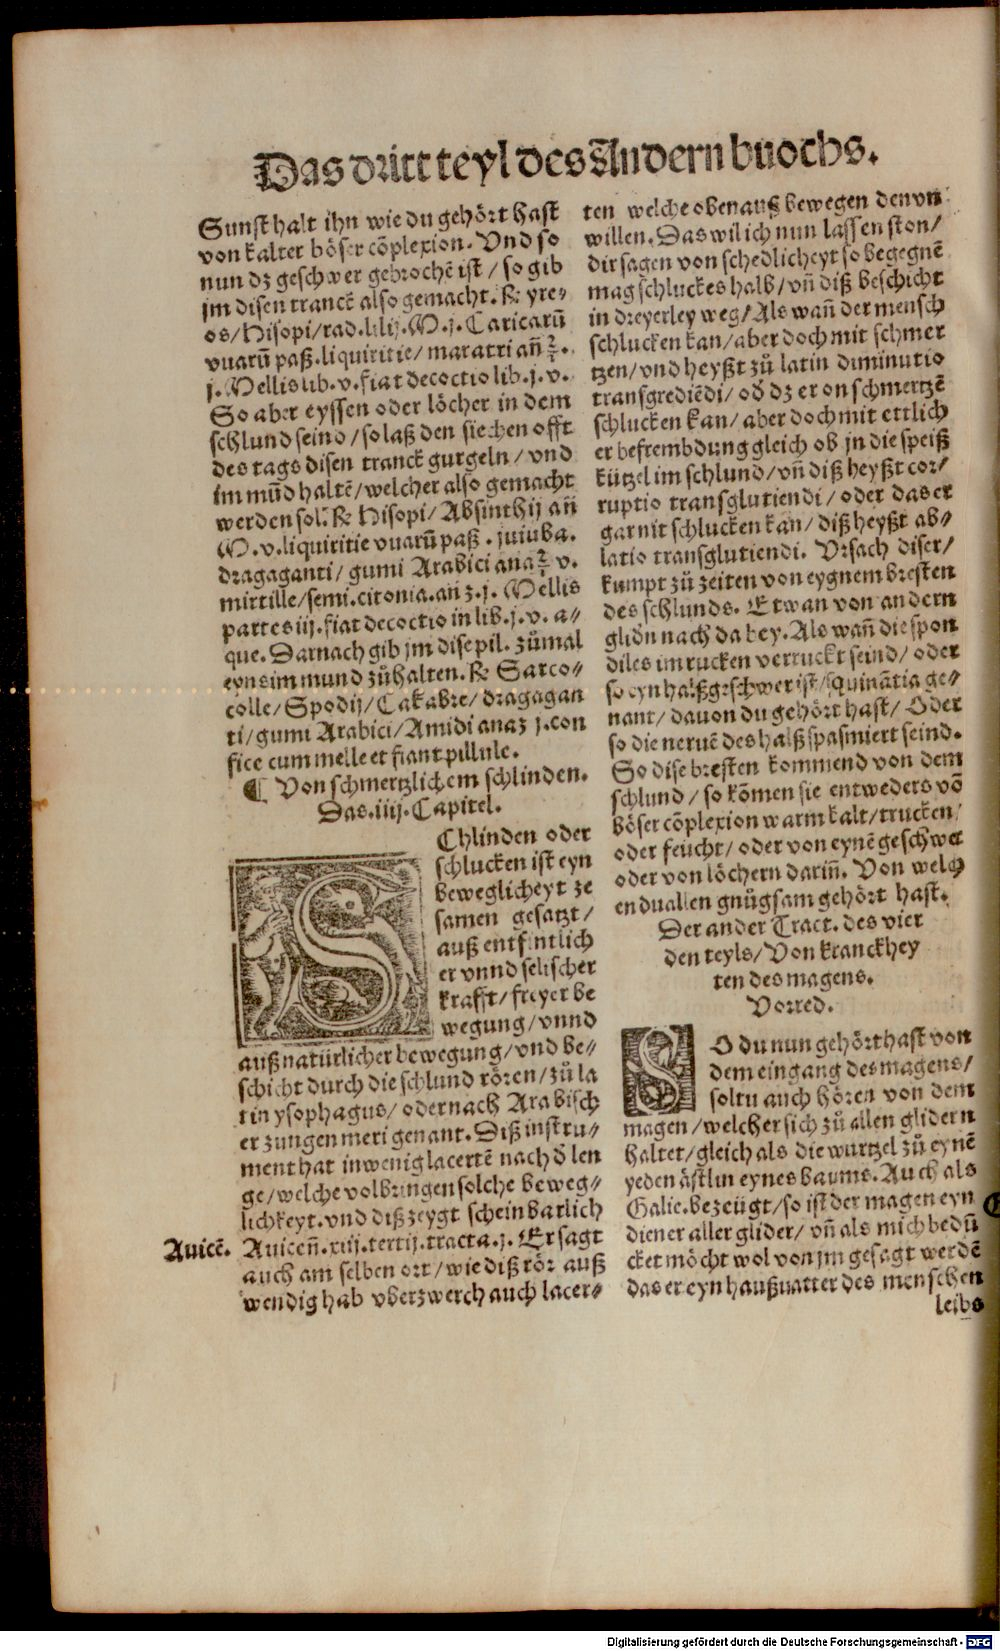 Das dritt teyl des Andern buochs.
Sunst halt ihn wie du gehört hast
von kalter böser cōplexion. Vnd so
nun dz geschwer gebrochē ist / so gib
jm disen tranck also gemacht. ℞ yre-
os/ Hisopi/ rad. lilij. M. j. Caricarū
vuarū paß. liquiritie/ maratri añ ℥.
j. Mellis lib. v. fiat decoctio lib. j. v.
So aber eyssen oder löcher in dem
schlund seind / so laß den siechen offt
des tags disen tranck gurgeln / vnd
im mūd haltē/ welcher also gemacht
werden sol. ℞ Hisopi/ Absinthij añ
M. v. liquiritie vuarū paß. juiuba.
dragaganti/ gumi Arabici ana ℥ v.
mirtille/ semi. citonia. añ ʒ. j. Mellis
partes iij. fiat decoctio in lib. j. v. a-
que. Darnach gib jm dise pil. zůmal
eyns im mund zů halten. ℞ Sarco-
colle/ Spodij/ Cakabre/ dragagan
ti/ gumi Arabici/ Amidi ana ʒ j. con
fice cum melle et fiant pillule.
¶ Von schmertzlichem schlinden.
Das. iiij. Capitel.
SChlinden oder
schlucken ist eyn
beweglicheyt ze
samen gesatzt /
auß entfintlich
er vnnd selischer
krafft / freyer be
wegung / vnnd
auß natürlicher bewegung / vnd be-
schicht durch die schlund rören / zů la
tin ysophagus / oder nach Arabisch
er zungen meri genant. Diß instru-
ment hat inwenig lacertē nach d̄ len
ge / welche volbringen solche beweg-
lichkeyt. vnd diß zeygt scheinbarlich
Auicē.
Auiceñ. xiij. tertij. tracta. j. Er sagt
auch am selben ort / wie diß rör auß
wendig hab vberzwerch auch lacer-
ten welche oben auß bewegen den vn
willen. Das wil ich nun lassen ston/
dir sagen von schedlicheyt so begegnē
mag schluckes halb/ vñ diß beschicht
in dreyerley weg / Als wañ der mensch
schlucken kan/ aber doch mit schmer
tzen/ vnd heyßt zů latin diminutio
transgrediēdi / od̄ dz er on schmertzē
schlucken kan / aber doch mit ettlich
er befrembdung gleich ob jn die speiß
kützel im schlund/ vñ diß heyßt cor-
ruptio transglutiendi / oder das er
gar nit schlucken kan/ diß heyßt ab-
latio transglutiendi. Vrsach diser/
kumpt zů zeiten von eygnem bresten
des schlunds. Etwan von andern
glidn nach da bey. Als wañ die spon
diles im rucken verruckt seind/ oder
so eyn halßgeschwer ist/ squinātia ge-
nant / dauon du gehört hast / Oder
so die neruē des halß spasmiert seind.
So dise bresten kommend von dem
schlund / so kōmen sie entweders vō
böser cōplexion warm kalt/ trucken/
oder feucht / oder von eynē geschwer
oder von löchern dariñ. Von welch
en du allen gnůgsam gehört hast.
Der ander Tract. des vier
den teyls/ Von kranckhey
ten des magens.
Vorred.
SO du nun gehört hast von
dem eingang des magens/
soltu auch hören von dem
magen / welcher sich zů allen glidern
haltet / gleich als die wurtzel zů eynē
yeden ästlin eynes baums. Auch als
Galie. bezeügt / so ist der magen eyn
diener aller glider / vñ als mich bedū
cket möcht wol von jm gesagt werdē
das er eyn haußuatter des menschen
leibs
Digitalisierung gefördert durch die Deutsche Forschungsgemeinschaft - DFG